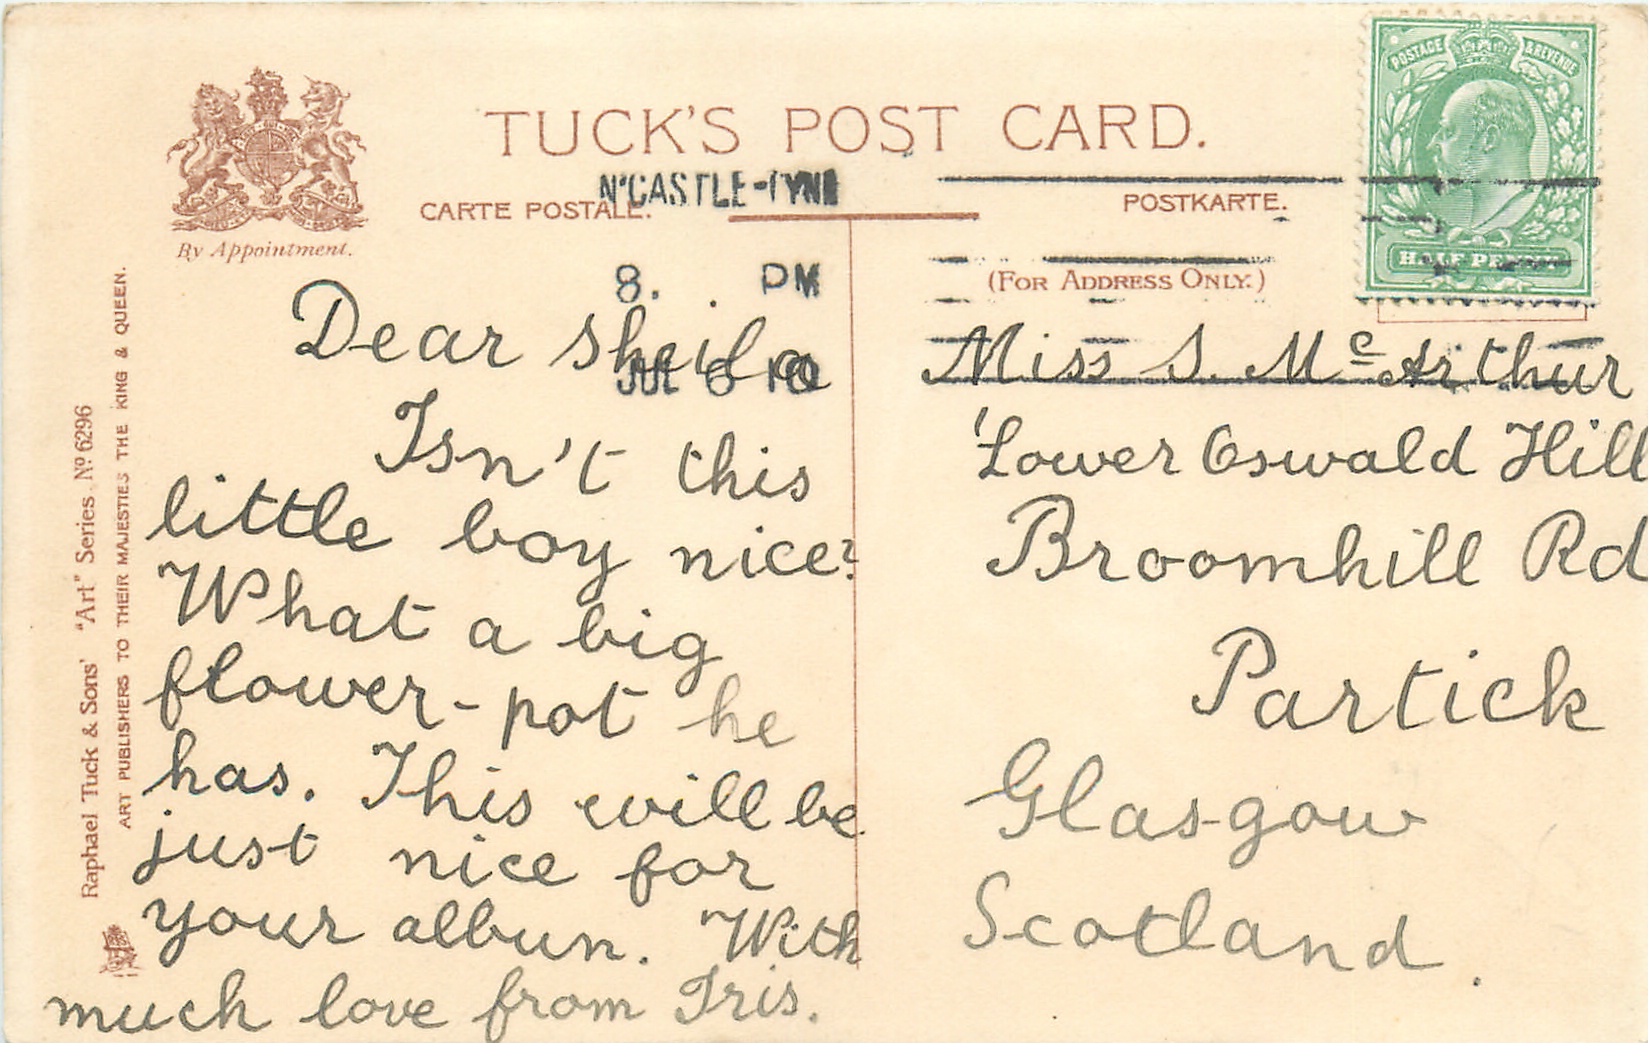 TUCK'S POST CARD.
CARTE POSTALE.
POSTKARTE.
By Appointment.
(FOR ADDRESS ONLY.)
N'CASTLE-TYNE
8. PM
JUL 6 10
POSTAGE & REVENUE
HALF PENNY
Raphael Tuck & Sons' "Art" Series Nº 6296
ART PUBLISHERS TO THEIR MAJESTIES THE KING & QUEEN.
Dear Sheila
Isn't this
little boy nice?
What a big
flower-pot he
has. This will be
just nice for
your album. With
much love from Iris.
Miss S. McArthur
Lower Oswald Hill
Broomhill Rd
Partick
Glasgow
Scotland.